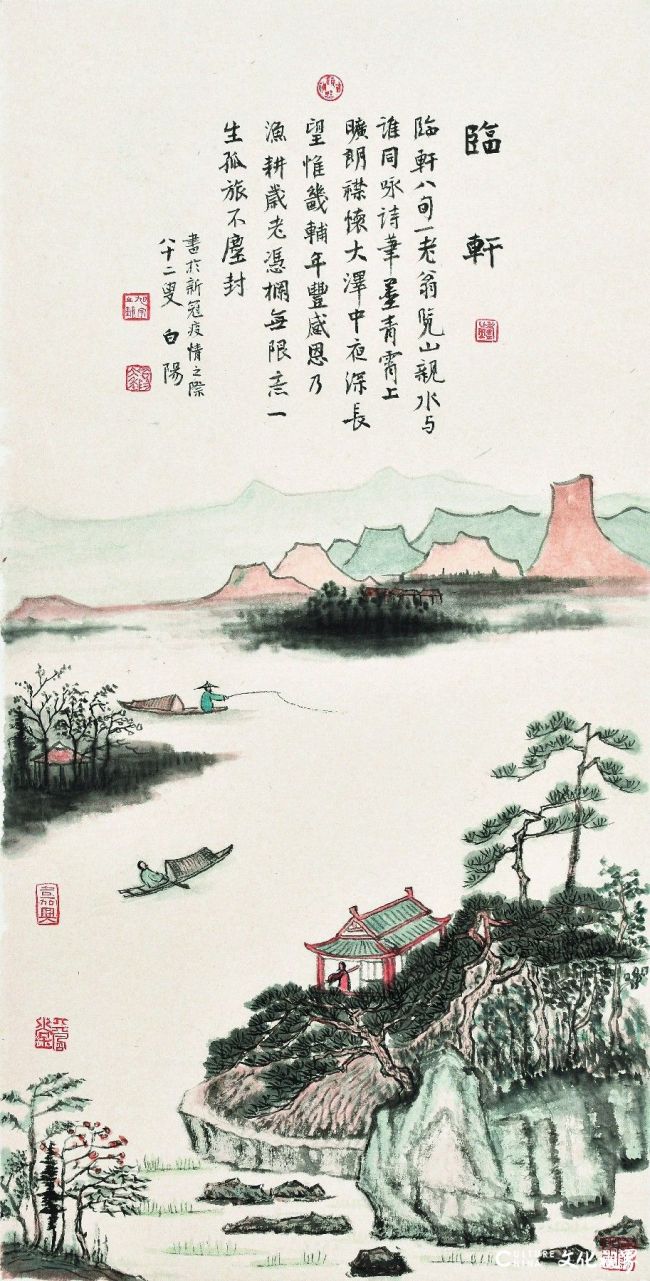 臨軒
临軒八旬一老翁览山親水与
谁同咏诗筆墨青霄上
曠朗襟懷大澤中夜深長
望惟畿輔年豐感恩乃
漁耕歲老憑欄無限意一
生孤旅不塵封
書於新冠疫情之際
八十二叟 白陽
CULTURE
CHINA 文化